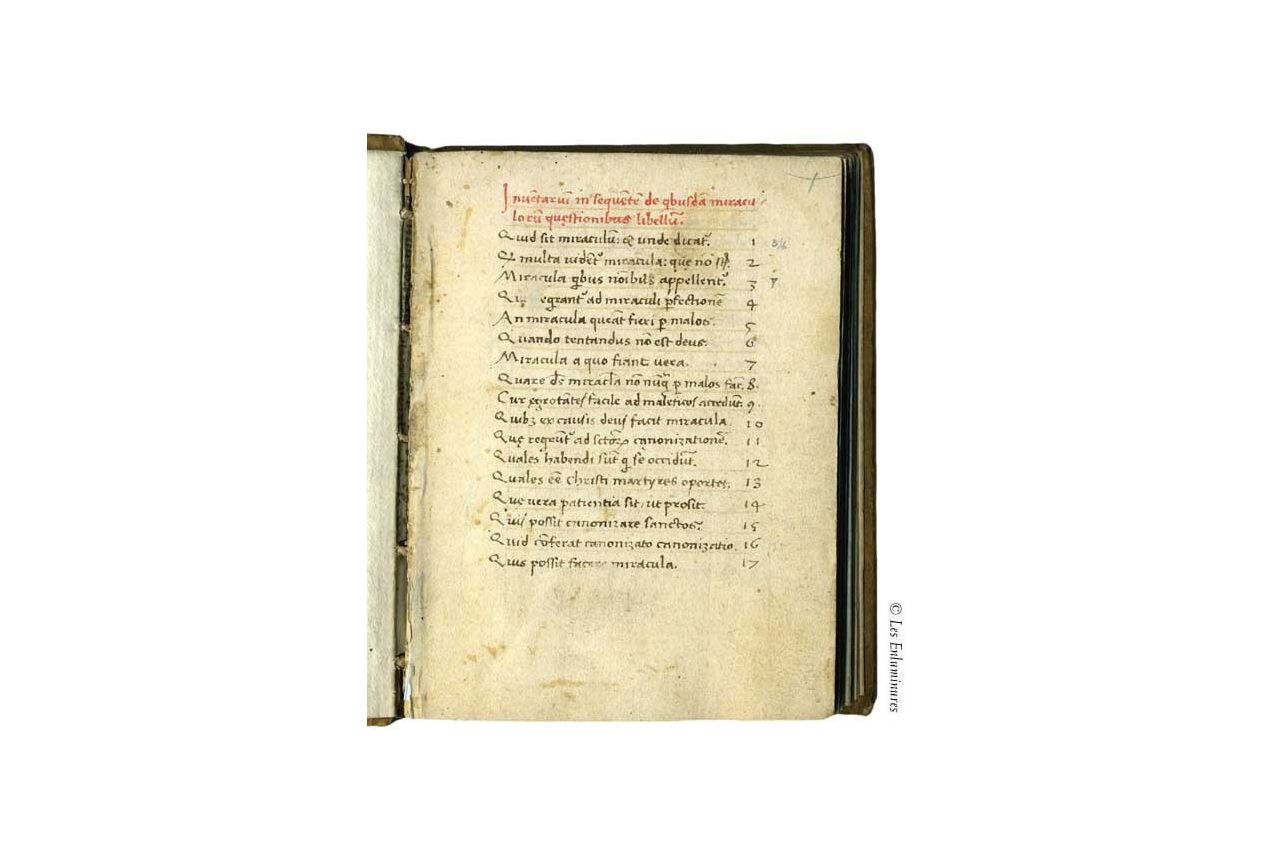 Inuētariū in sequētē de qbusdā miracu
lorū quęstionibus libellū.
Quid sit miraculū: & unde dicat᷑. 1
Ꝙ multa uidēt᷑ miracula: que nō sūt. 2
Miracula qbus noībus appellent᷑. 3
egrant᷑ ad miraculi pfectionē 4
An miracula queāt fieri ꝑ malos. 5
Quando tentandus nō est deus. 6
Miracula a quo fiant uera. 7
Quare ds̄ miracl̄a nō nūq̄ ꝑ malos fac̄. 8.
Cur ęgrotātes facile ad maleficos accedūt. 9.
Quibꝫ ex causis deus facit miracula. 10
Quę reqrūt᷑ ad sctōꝝ canonizationē. 11
Quales habendi sūt q se occidūt. 12
Quales eē Christi martyres oportet. 13
Que uera patientia sit, ut prosit. 14
Quis possit canonizare sanctos. 15
Quid cōferat canonizato canonizatio. 16
Quis possit facere miracula. 17
© Les Enluminures